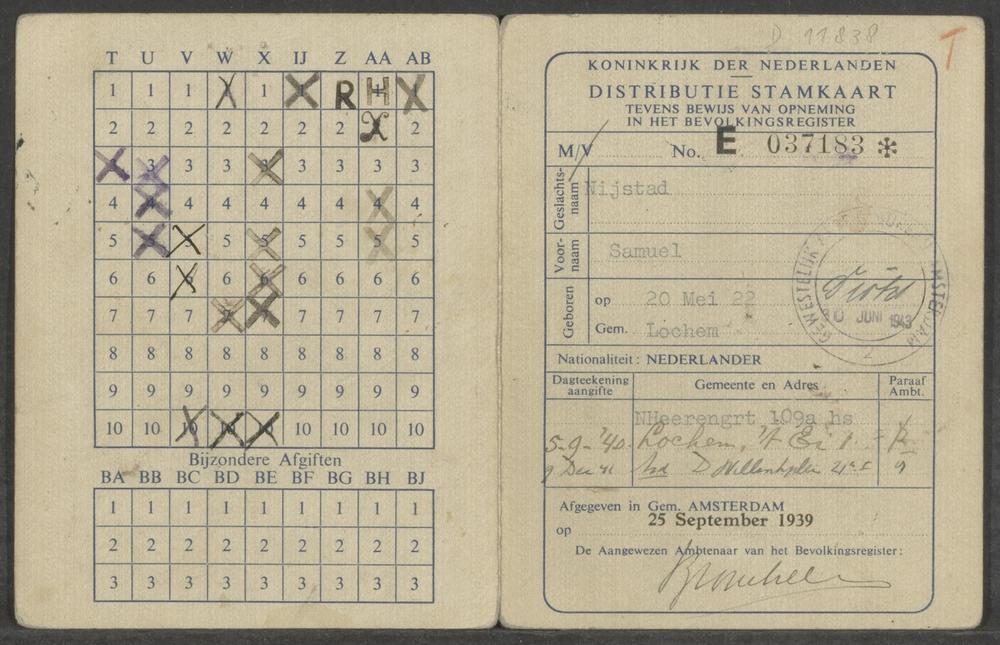 T U V W X IJ Z AA AB
1 1 1 1 1 1 R H 1
2 2 2 2 2 2 2 2
3 3 3 3 3 3 3 3 3
4 4 4 4 4 4 4 4 4
5 5 5 5 5 5 5 5 5
6 6 6 6 6 6 6 6 6
7 7 7 7 7 7 7 7 7
8 8 8 8 8 8 8 8 8
9 9 9 9 9 9 9 9 9
10 10 10 10 10 10 10 10 10
Bijzondere Afgiften
BA BB BC BD BE BF BG BH BJ
1 1 1 1 1 1 1 1 1
2 2 2 2 2 2 2 2 2
3 3 3 3 3 3 3 3 3
D 11838
T
KONINKRIJK DER NEDERLANDEN
DISTRIBUTIE STAMKAART
TEVENS BEWIJS VAN OPNEMING
IN HET BEVOLKINGSREGISTER
M/V No. E 037183 *
Geslachtsnaam Nijstad
Voornaam Samuel
Geboren op 20 Mei 22
Gem. Lochem
GEWESTELIJK AMSTERDAM
10 JUNI 1943
2
Nationaliteit: NEDERLANDER
Dagteekening aangifte Gemeente en Adres Paraaf Ambt.
NHeerengrt 109a hs
5-9-'40 Lochem,
9 Dec 41
Afgegeven in Gem. AMSTERDAM
op 25 September 1939
De Aangewezen Ambtenaar van het Bevolkingsregister: